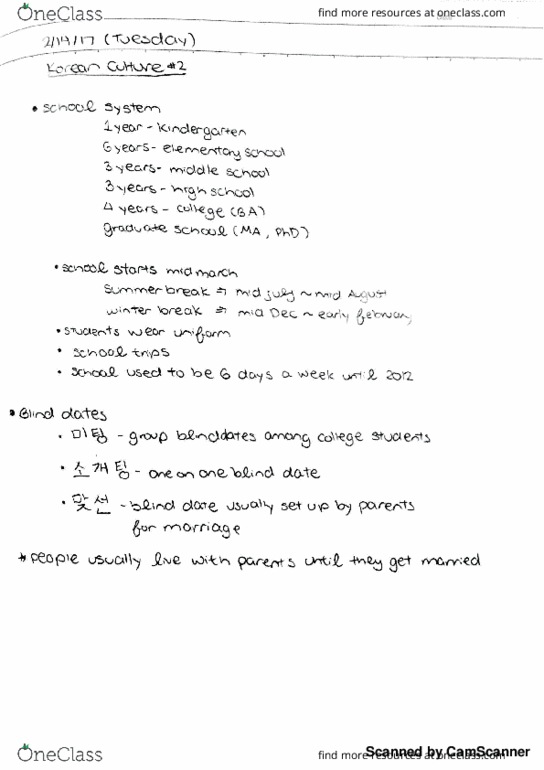 OneClass
find more resources at oneclass.com
2/14/17 (Tuesday)
Korean Culture #2
• school system
1 year - kindergarten
6 years - elementary school
3 years - middle school
3 years - high school
4 years - college (BA)
graduate school (MA, PhD)
• school starts mid march
summer break ⇒ mid july ~ mid August
winter break ⇒ mid Dec ~ early february
• students wear uniform
• school trips
• school used to be 6 days a week until 2012
• Blind dates
• 미팅 - group blinddates among college students
• 소개팅 - one on one blind date
• 맞선 - blind date usually set up by parents
for marriage
* people usually live with parents until they get married
OneClass
find more resources at oneclass.com
Scanned by CamScanner